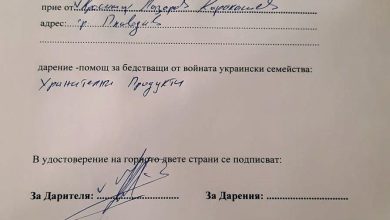 прие от:
адрес: гр. Пловдив
дарение -помощ за бедстващи от войната украински семейства:
Хранителни Продукти
В удостоверение на горното двете страни се подписват:
За Дарителя: За Дарения: